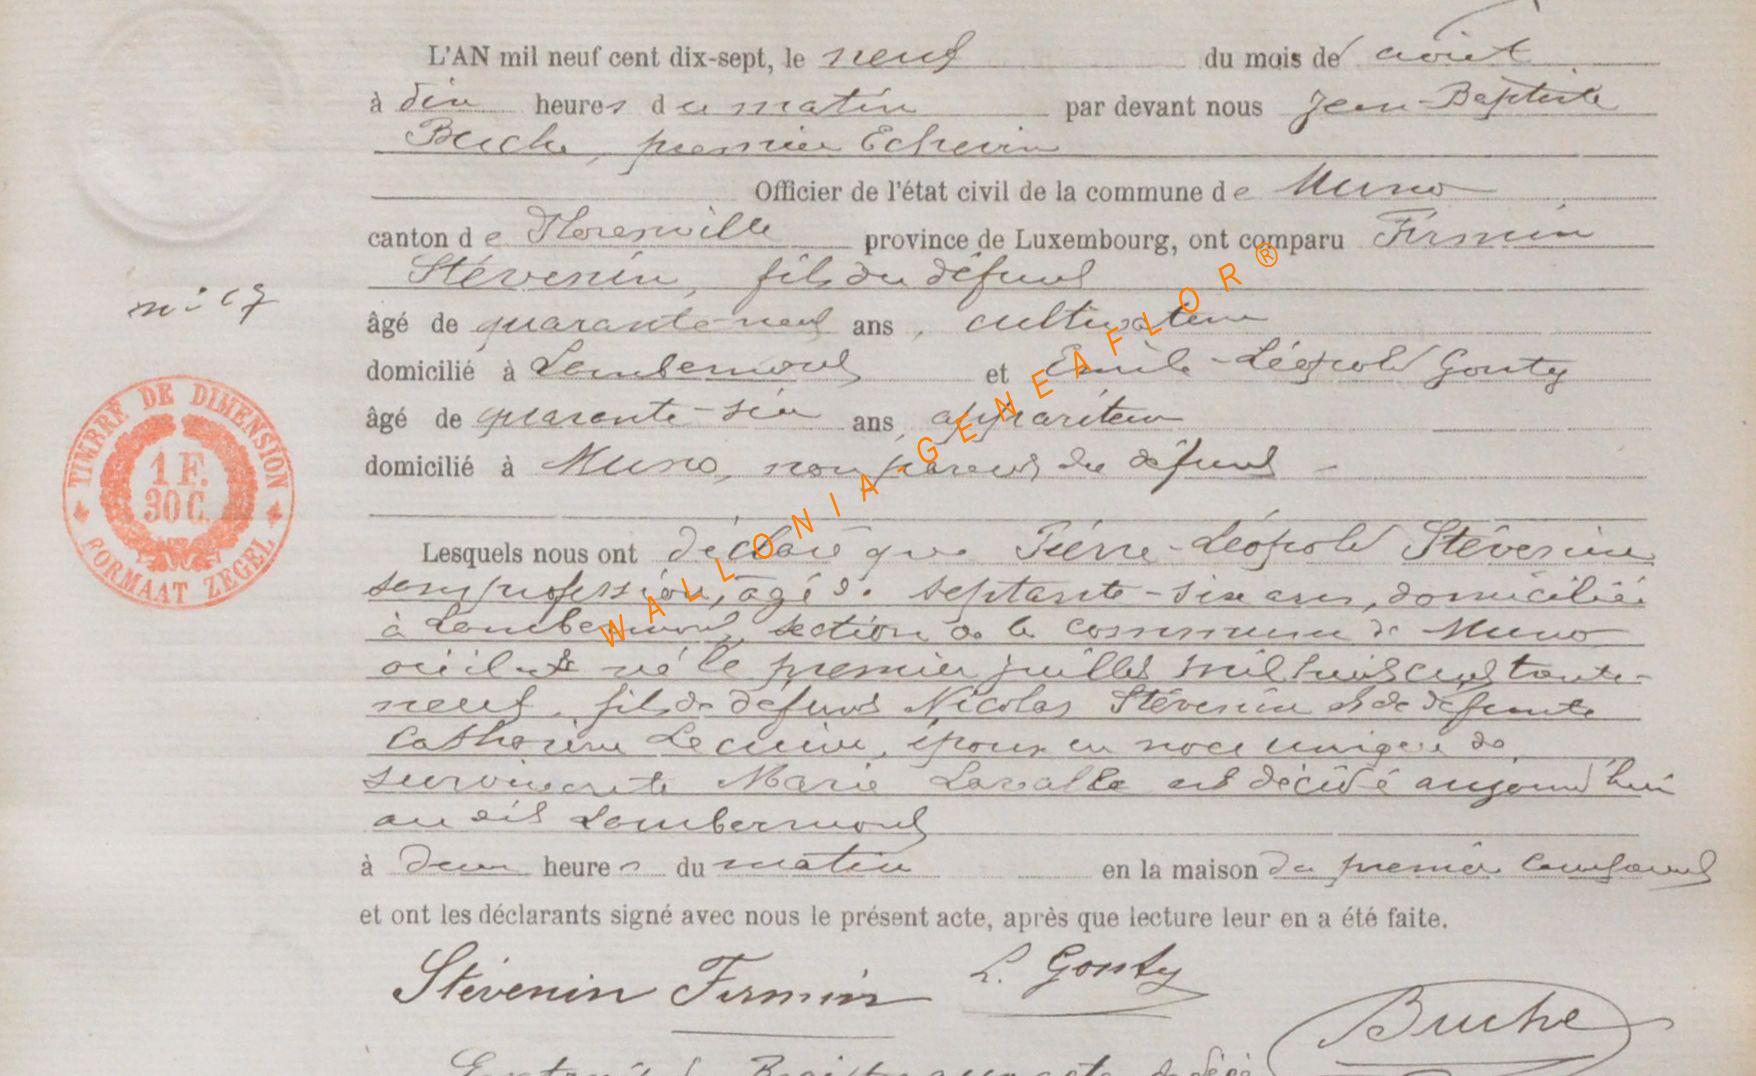 L'AN mil neuf cent dix-sept, le neuf du mois de août
à dix heures du matin par devant nous Jean-Baptiste
Buche, premier Echevin
Officier de l'état civil de la commune de Muno
canton de Florenville province de Luxembourg, ont comparu Firmin
Stévenin, fils du défunt
n° 17
âgé de quarante-neuf ans, cultivateur
domicilié à Lambermont et Emile-Léopold Gonty
âgé de quarante-six ans, appariteur
domicilié à Muno, non parent du défunt
TIMBRE DE DIMENSION
1 F.
30 C.
FORMAAT ZEGEL
Lesquels nous ont déclaré que Pierre-Léopold Stévenin
sans profession, âgé de septante-six ans, domicilié
à Lambermont, section de la commune de Muno
où il est né le premier juillet mil huit cent
neuf, fils de défunt Nicolas Stévenin et de défunte
Catherine époux en noce unique de
survivante Marie Lavalle est décédé aujourd'hui
au dit Lambermont
à deux heures du matin en la maison du premier comparant
et ont les déclarants signé avec nous le présent acte, après que lecture leur en a été faite.
Stévenin Firmin L. Gonty
Buche
WALLONIA-GENEAFLOR®